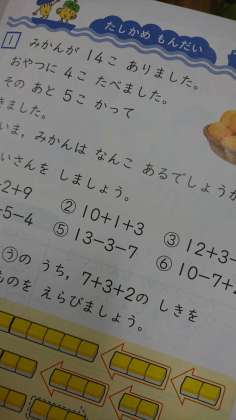 たしかめ もんだい
1 みかんが 14こ ありました。
おやつに 4こ たべました。
その あと 5こ かって
きました。
いま、みかんは なんこ あるでしょうか
いさんを しましょう。
2+9 ② 10+1+3 ③ 12+3-
-5-4 ⑤ 13-3-7 ⑥ 10-7+2
③の うち、7+3+2の しきを
ものを えらびましょう。